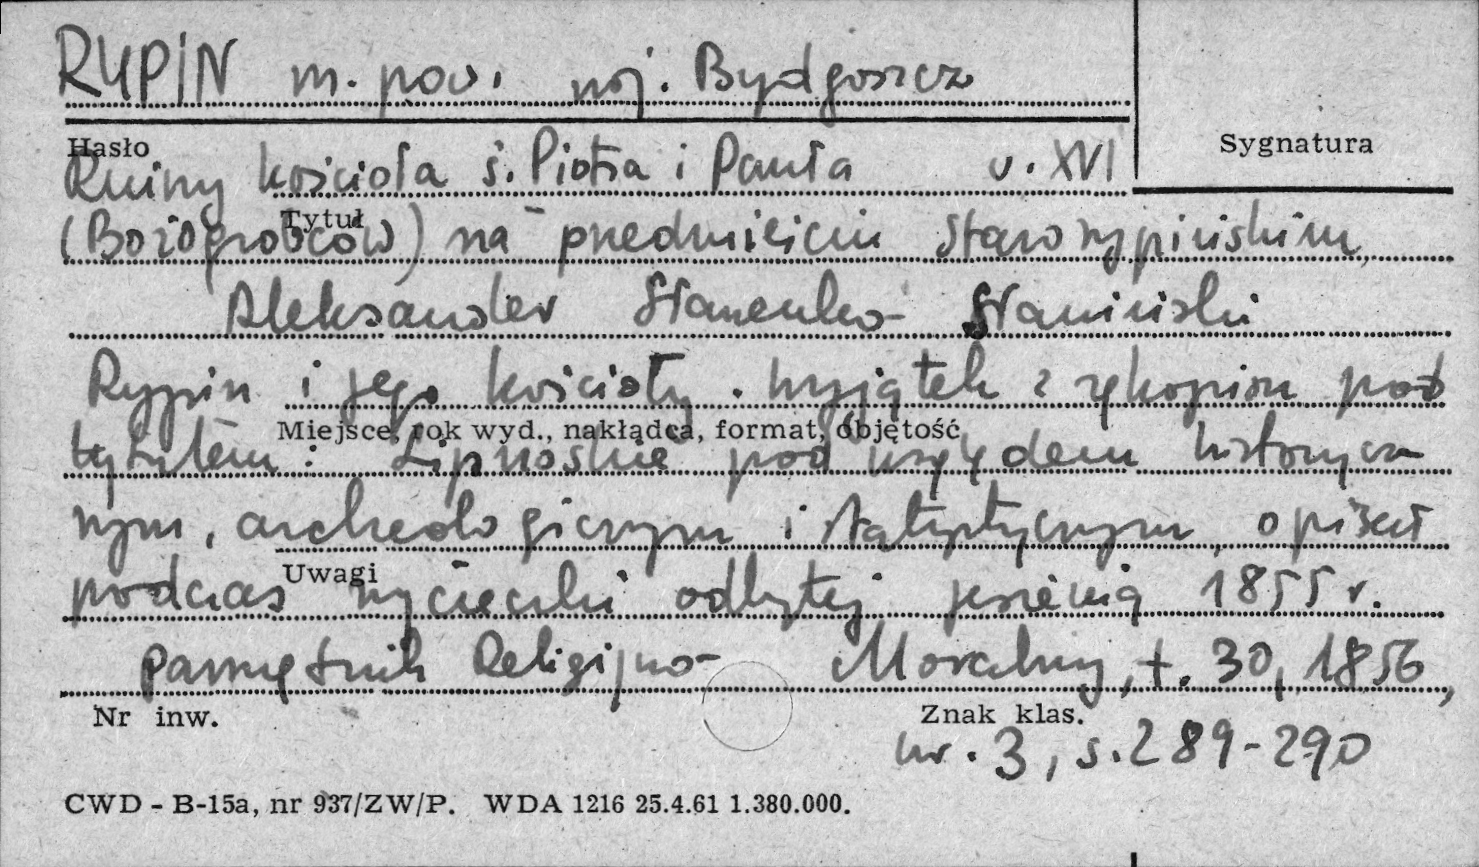 RYPIN m. pow. woj. Bydgoszcz
Hasło
Sygnatura
Ruiny kościoła ś. Piotra i Pawła w. XVI
Tytuł
(Bożogrobców) na przedmieściu starorypińskim,
Aleksander Stanisławski
Rypin i jego kościoły. Wyjątek z rękopisu pod
Miejsce, rok wyd., nakładca, format, objętość
tytułem: Lipnoskie pod względem historycz
nym, archeologicznym i statystycznym, opisał
Uwagi
podczas wycieczki odbytej jesienią 1855 r.
Pamiętnik Religijno- Moralny, t. 30, 1856,
Nr inw.
Znak klas.
nr. 3, s. 289-290
CWD - B-15a, nr 937/ZW/P. WDA 1216 25.4.61 1.380.000.